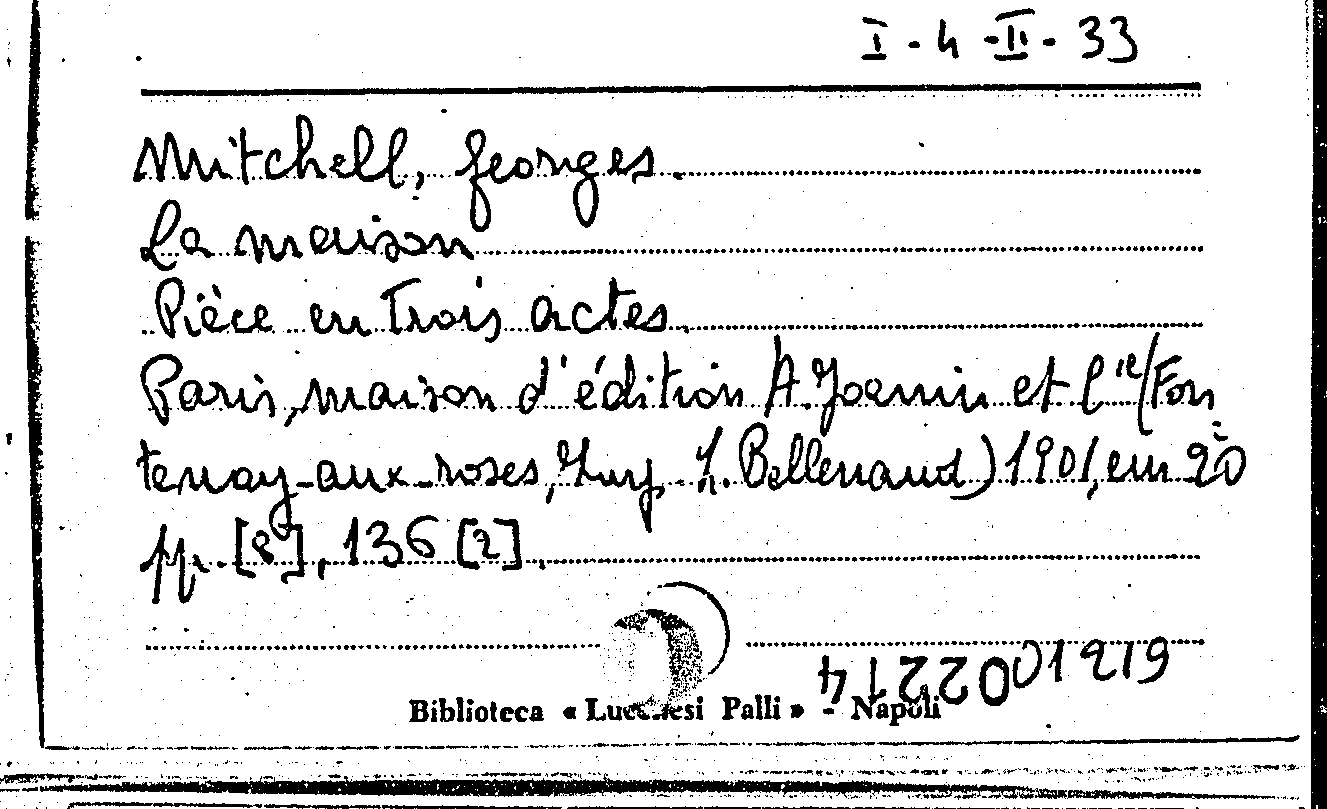 I - 4 - II - 33
Mitchell, Georges.
La maison
Pièce en trois actes.
Paris, maison d'édition A. Joanin et C.ie (Fon
tenay-aux-roses, Imp. L. Bellenand) 1901, in 20
pp. [8], 136 [2].
Biblioteca « Lucchesi Palli » - Napoli